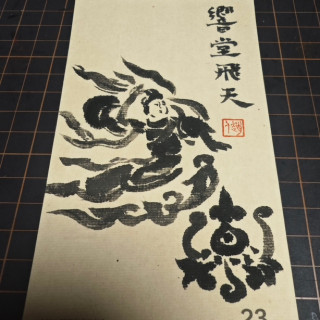 響堂飛天
23